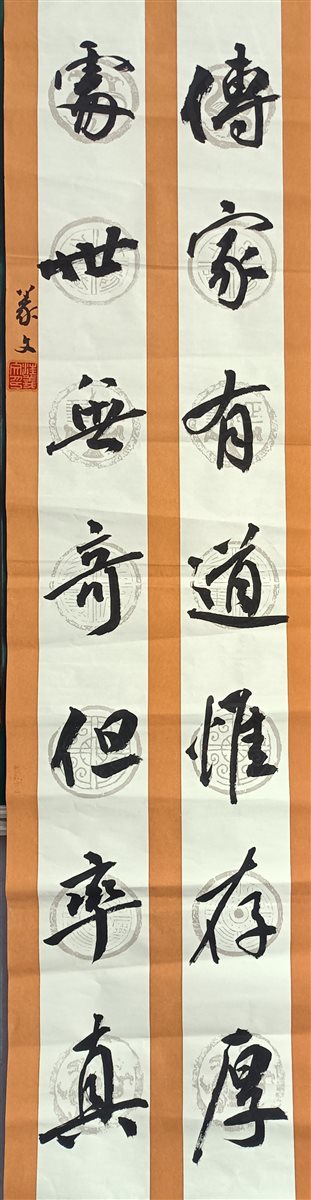 傳家有道惟存厚
處世無奇但率真
義文